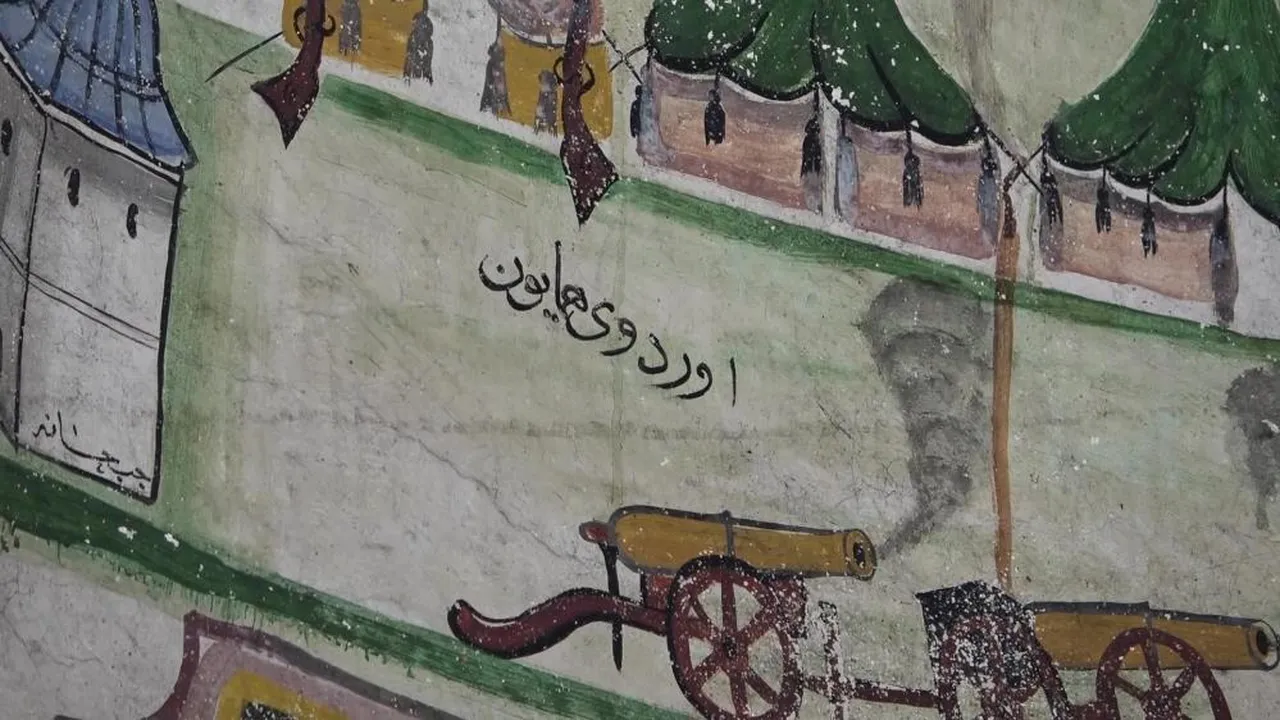 اوردوی همایون
جبه خانه